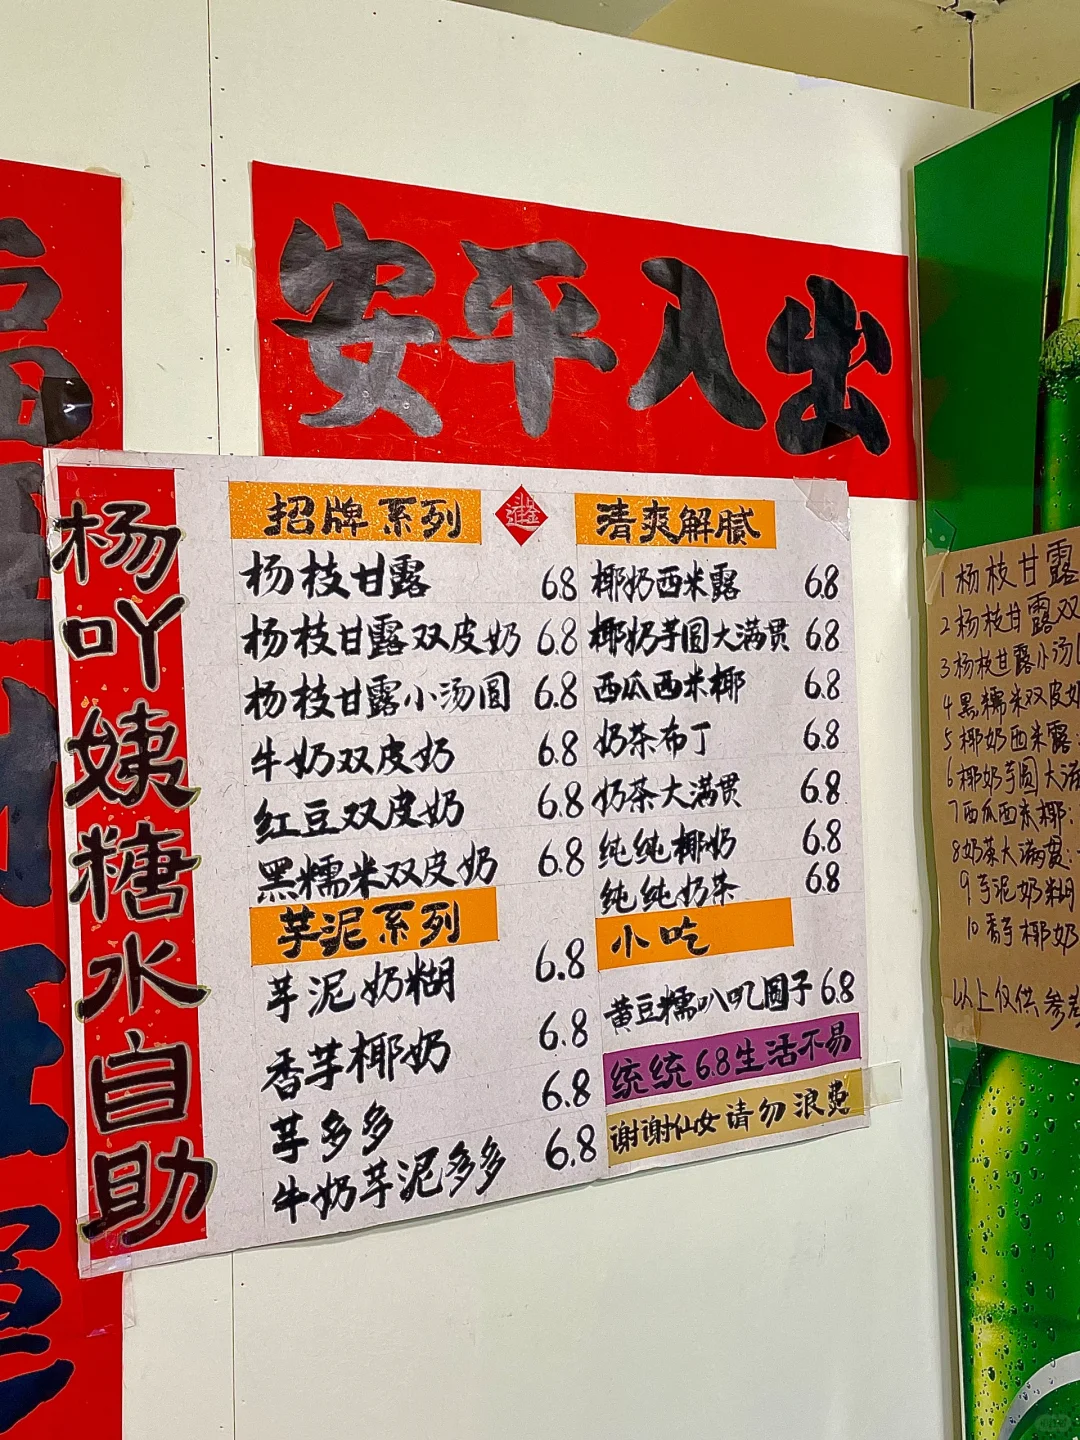 安平入出
杨吖姨糖水自助
招牌系列
杨枝甘露 6.8
杨枝甘露双皮奶 6.8
杨枝甘露小汤圆 6.8
牛奶双皮奶 6.8
红豆双皮奶 6.8
黑糯米双皮奶 6.8
芋泥系列
芋泥奶糊 6.8
香芋椰奶 6.8
芋多多 6.8
牛奶芋泥多多 6.8
清爽解腻
椰奶西米露 6.8
椰奶芋圆大满贯 6.8
西瓜西米椰 6.8
奶茶布丁 6.8
奶茶大满贯 6.8
纯纯椰奶 6.8
纯纯奶茶 6.8
小吃
黄豆糯叭叽圆子 6.8
统统6.8生活不易
谢谢仙女请勿浪费
1 杨枝甘露
2 杨枝甘露双
3 杨枝甘露小汤
4 黑糯米双皮奶
5 椰奶西米露:
6 椰奶芋圆大满
7 西瓜西米椰:
8 奶茶大满贯:
9 芋泥奶糊
10 香芋椰奶
以上仅供参考